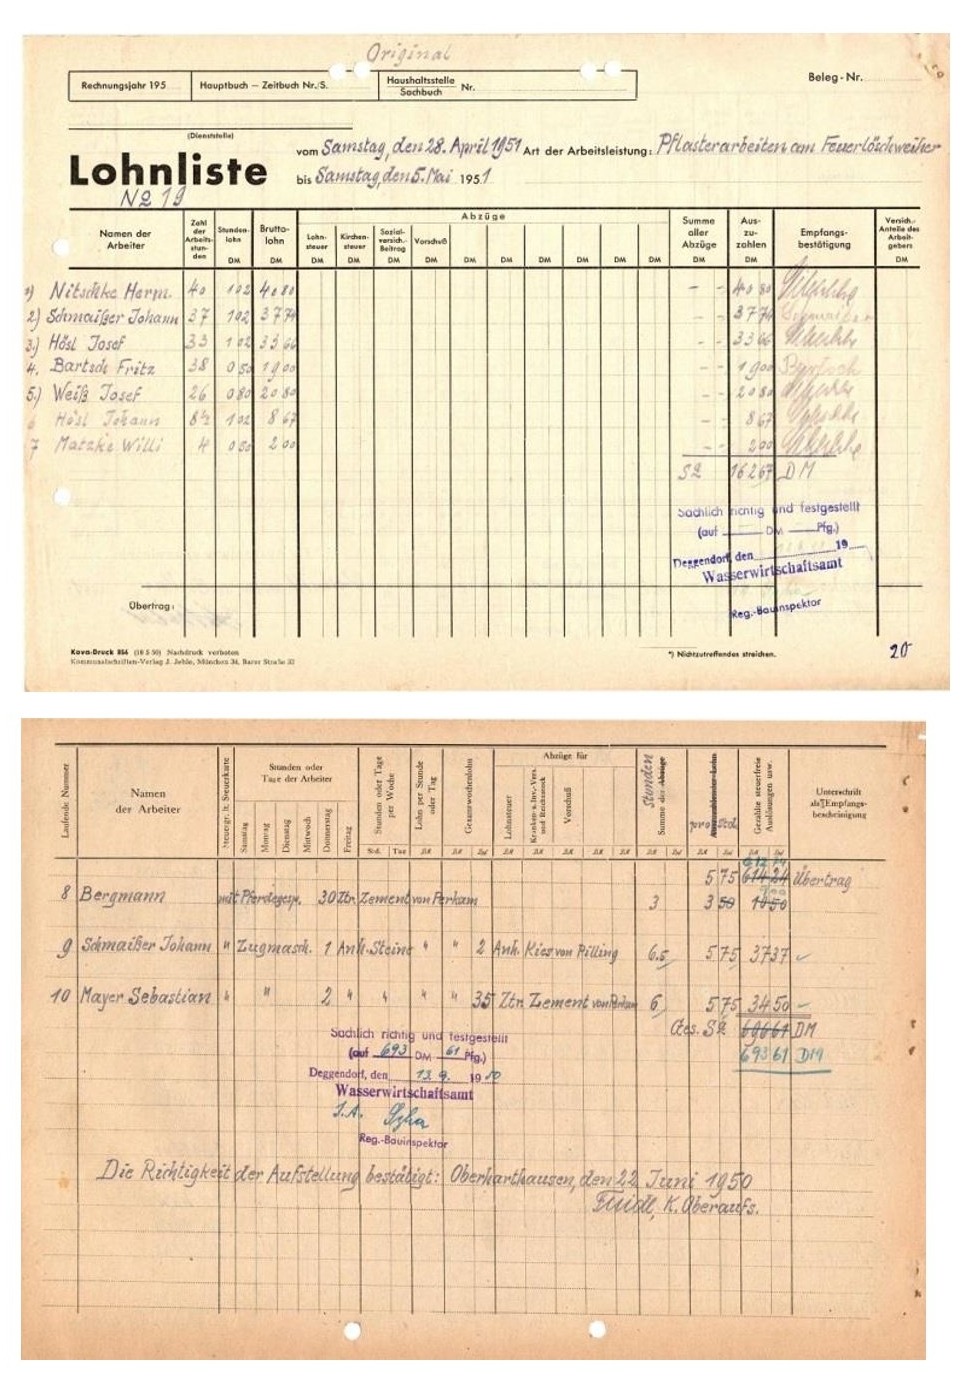 Original
Rechnungsjahr 195
Hauptbuch – Zeitbuch Nr./S.
Haushaltsstelle
Sachbuch Nr.
Beleg-Nr.
(Dienststelle)
Lohnliste
No 19
vom Samstag, den 28. April 1951 Art der Arbeitsleistung: Pflasterarbeiten am Feuerlöschweiher
bis Samstag, den 5. Mai 1951
Namen der Arbeiter
Zahl der Arbeits-stun-den
Stunden-lohn DM
Brutto-lohn DM
Abzüge
Lohn-steuer DM
Kirchen-steuer DM
Sozial-versich.-Beitrag DM
Vorschuß DM
DM DM DM DM DM DM
Summe aller Abzüge DM
Aus-zu-zahlen DM
Empfangs-bestätigung
Versich.-Anteile des Arbeit-gebers DM
1) Nitschke Herm. 40 1 02 40 80 – – 40 80
2) Schmaißer Johann 37 1 02 37 74 – – 37 74 Schmaißer
3.) Hösl Josef 33 1 02 33 66 – – 33 66
4. Bartsch Fritz 38 0 50 19 00 – – 19 00 Bartsch
5.) Weiß Josef 26 0 80 20 80 – – 20 80
6 Hösl Johann 8½ 1 02 8 67 – – 8 67
7 Matzke Willi 4 0 50 2 00 – – 2 00
Sa 162 67 DM
Sachlich richtig und festgestellt
(auf DM Pfg.)
Deggendorf, den 19
Wasserwirtschaftsamt
Reg.-Bauinspektor
Übertrag:
Kova-Druck 856 (10 5 50) Nachdruck verboten
Kommunalschriften-Verlag J. Jehle, München 34, Barer Straße 32
*) Nichtzutreffendes streichen.
20
Laufende Nummer
Namen der Arbeiter
Steuergr. lt. Steuerkarte
Stunden oder Tage der Arbeiter
Samstag
Montag
Dienstag
Mittwoch
Donnerstag
Freitag
Stunden oder Tage per Woche
Lohn per Stunde oder Tag
Gesamtwochenlohn
Abzüge für
Lohnsteuer
Kranken- u. Inv.-Vers. und Reichsstock
Vorschuß
Stunden
Summe der Abzüge
pro Std.
Gezahlte steuerfreie Auslösungen usw.
Unterschrift als Empfangs-bescheinigung
612 74
5 75 614 24 Übertrag
9 00
8 Bergmann mit Pferdegesp. 30 Ztr. Zement von Perkam 3 3 50 10 50
9 Schmaißer Johann " Zugmasch. 1 Anh. Steine " " 2 Anh. Kies von Pilling 6.5 5 75 37 37
10 Mayer Sebastian " " 2 " " " " 35 Ztr. Zement von Perkam 6 5 75 34 50
Ges. Sa 696 61 DM
693 61 DM
Sachlich richtig und festgestellt
(auf 693 DM 61 Pfg.)
Deggendorf, den 13. 9. 1950
Wasserwirtschaftsamt
I. A.
Reg.-Bauinspektor
Die Richtigkeit der Aufstellung bestätigt: Oberharthausen, den 22 Juni 1950
K. Oberaufs.